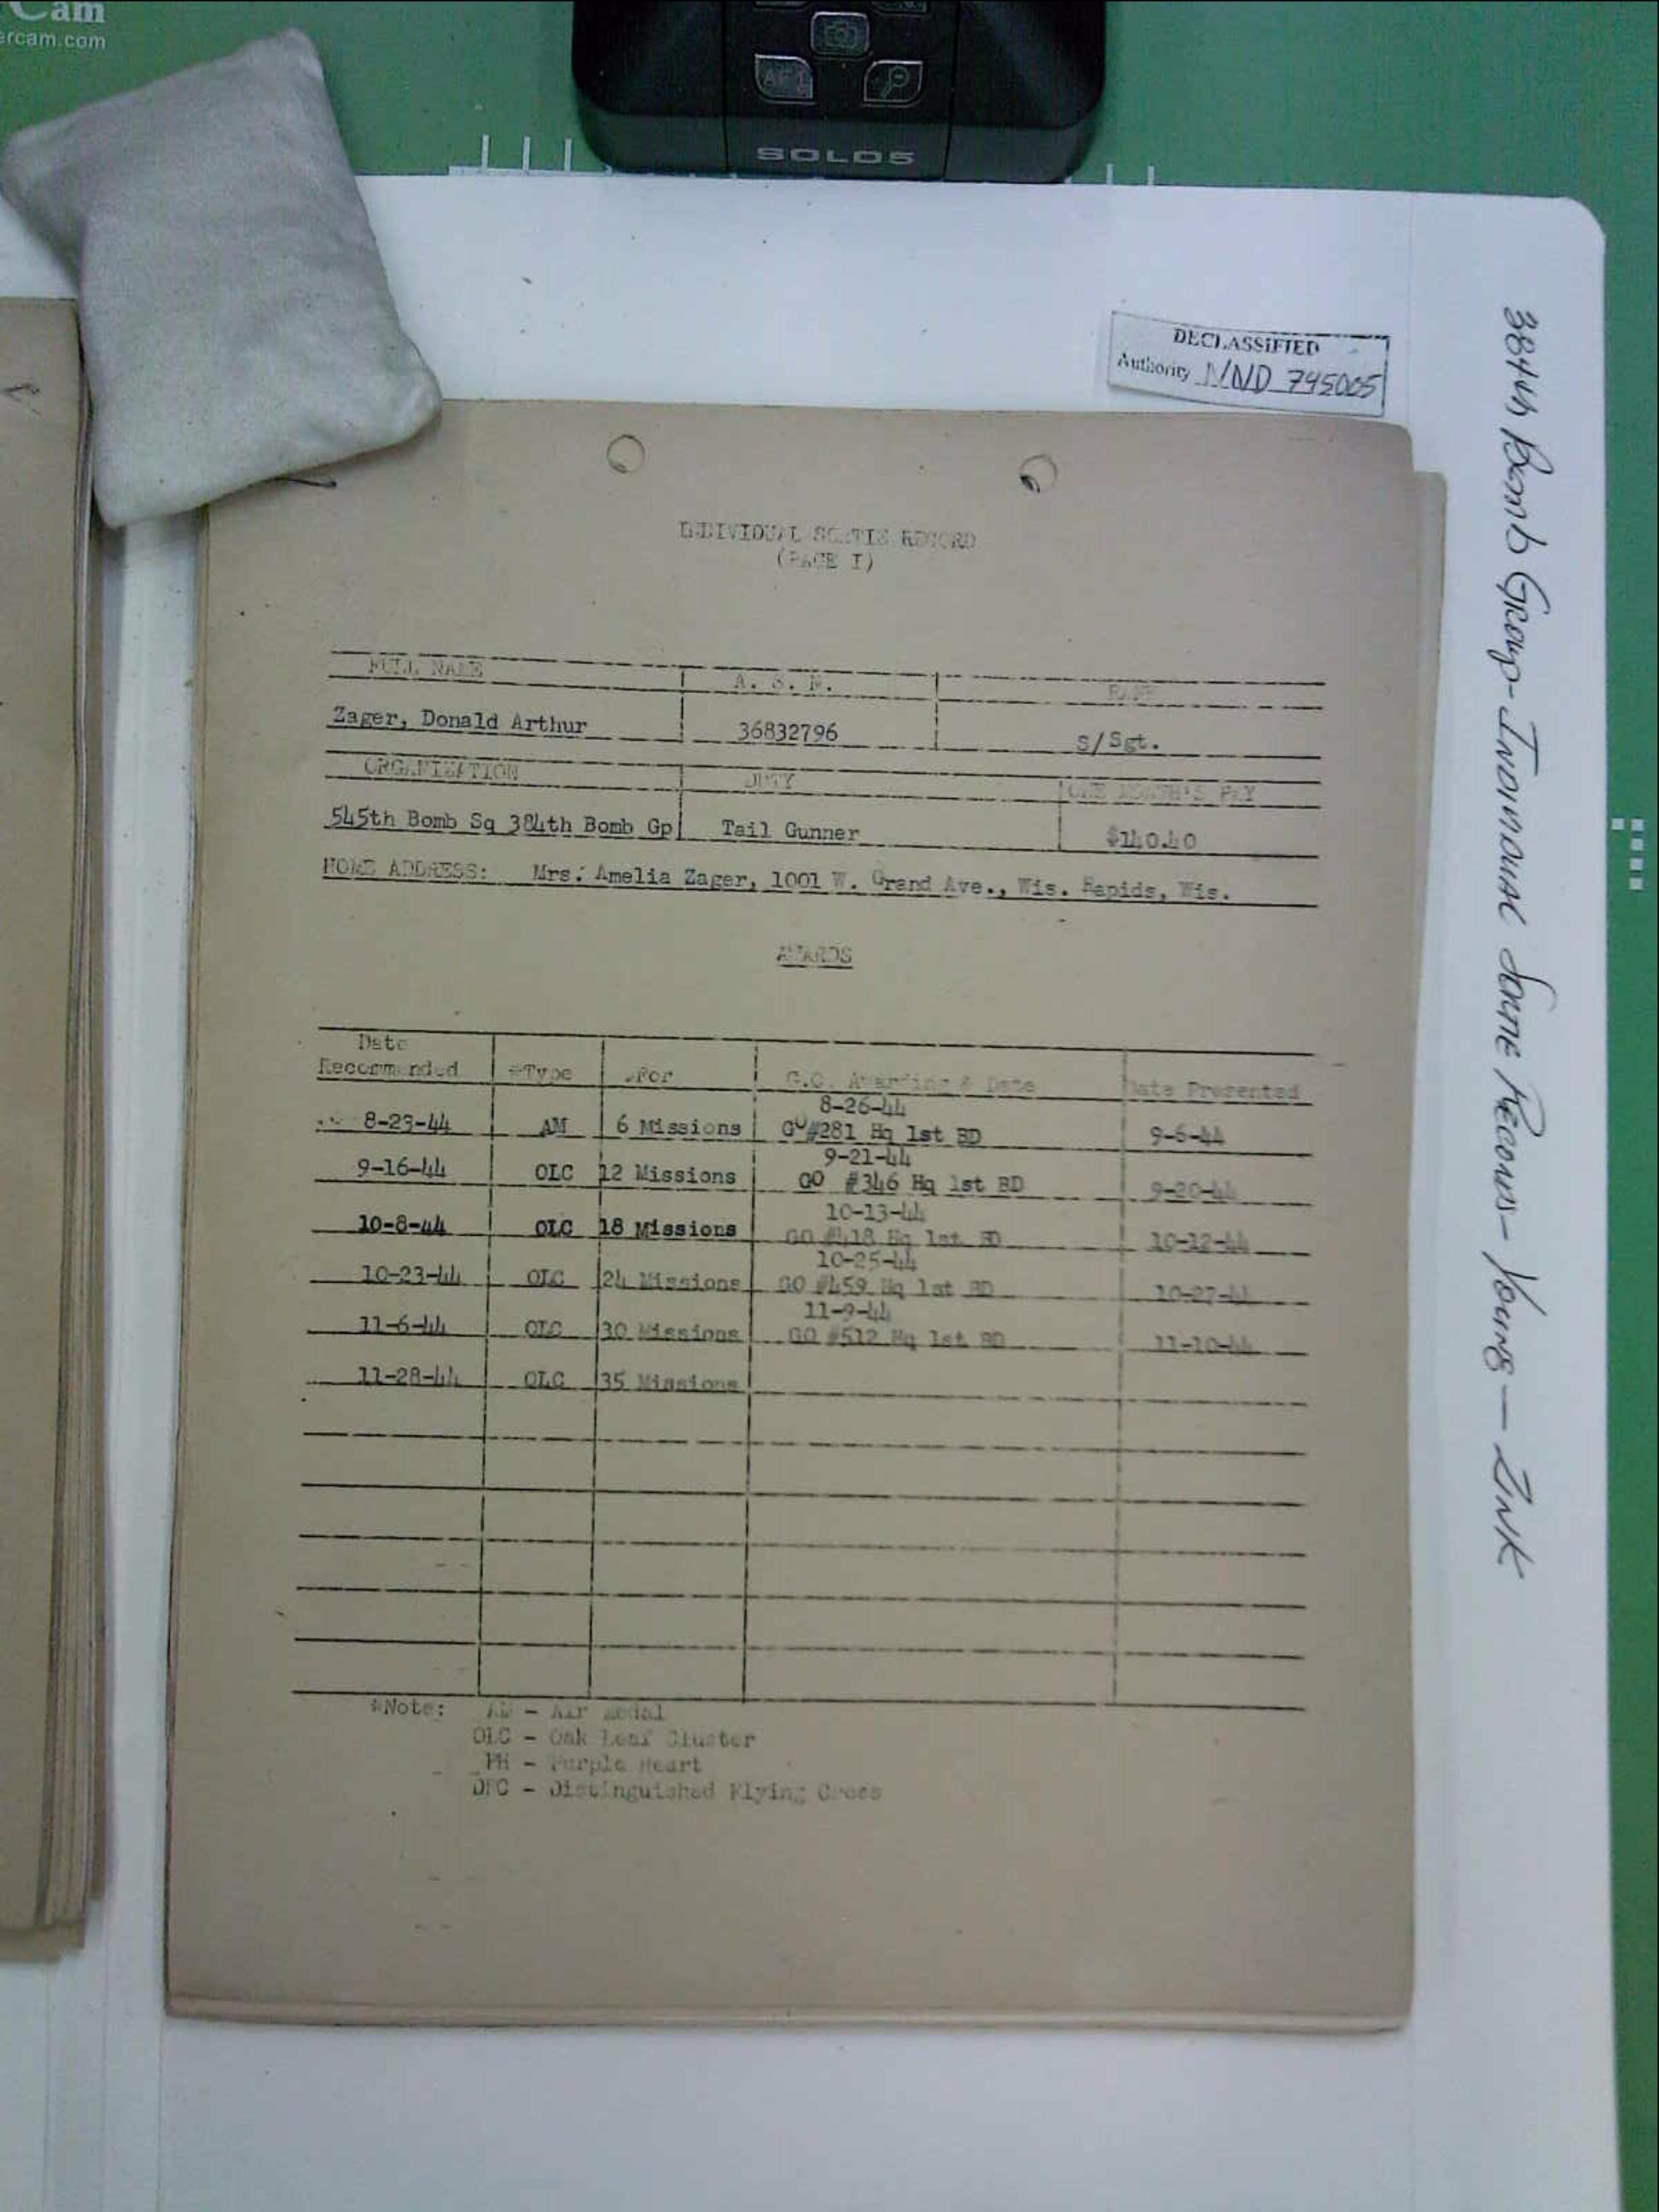 Cam
ercam.com
SOLO5
DECLASSIFIED
Authority NND 745005
384th Bomb Group - Individual Sortie Records - Young - Zink
INDIVIDUAL SORTIE RECORD
(PAGE I)
FULL NAME A. S. N. RANK
Zager, Donald Arthur 36832796 S/Sgt.
ORGANIZATION DUTY ONE MONTH'S PAY
545th Bomb Sq 384th Bomb Gp Tail Gunner $140.40
HOME ADDRESS: Mrs. Amelia Zager, 1001 W. Grand Ave., Wis. Rapids, Wis.
AWARDS
Date
Recommended *Type For G.O. Awarding & Date Date Presented
8-26-44
8-23-44 AM 6 Missions GO #281 Hq 1st BD 9-6-44
9-21-44
9-16-44 OLC 12 Missions GO #346 Hq 1st BD 9-20-44
10-13-44
10-8-44 OLC 18 Missions GO #418 Hq 1st BD 10-12-44
10-25-44
10-23-44 OLC 24 Missions GO #459 Hq 1st BD 10-27-44
11-9-44
11-6-44 OLC 30 Missions GO #512 Hq 1st BD 11-10-44
11-28-44 OLC 35 Missions
*Note: AM - Air Medal
OLC - Oak Leaf Cluster
PH - Purple Heart
DFC - Distinguished Flying Cross